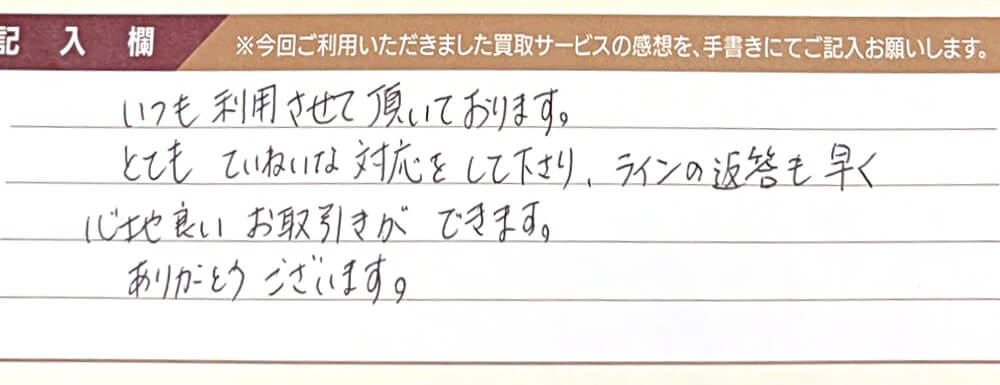 記入欄
※今回ご利用いただきました買取サービスの感想を、手書きにてご記入お願いします。
いつも利用させて頂いております。
とても ていねいな対応をして下さり、ラインの返答も早く
心地良い お取引きが できます。
ありがとう ございます。